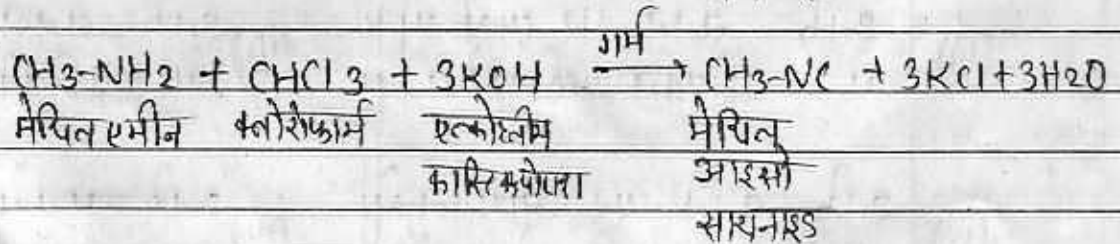 गर्म
CH3-NH2 + CHCl3 + 3KOH → CH3-NC + 3KCl + 3H2O
मेथिल एमीन क्लोरोफार्म एल्कोहलीय मेथिल
कास्टिक पोटाश आइसो
सायनाइड